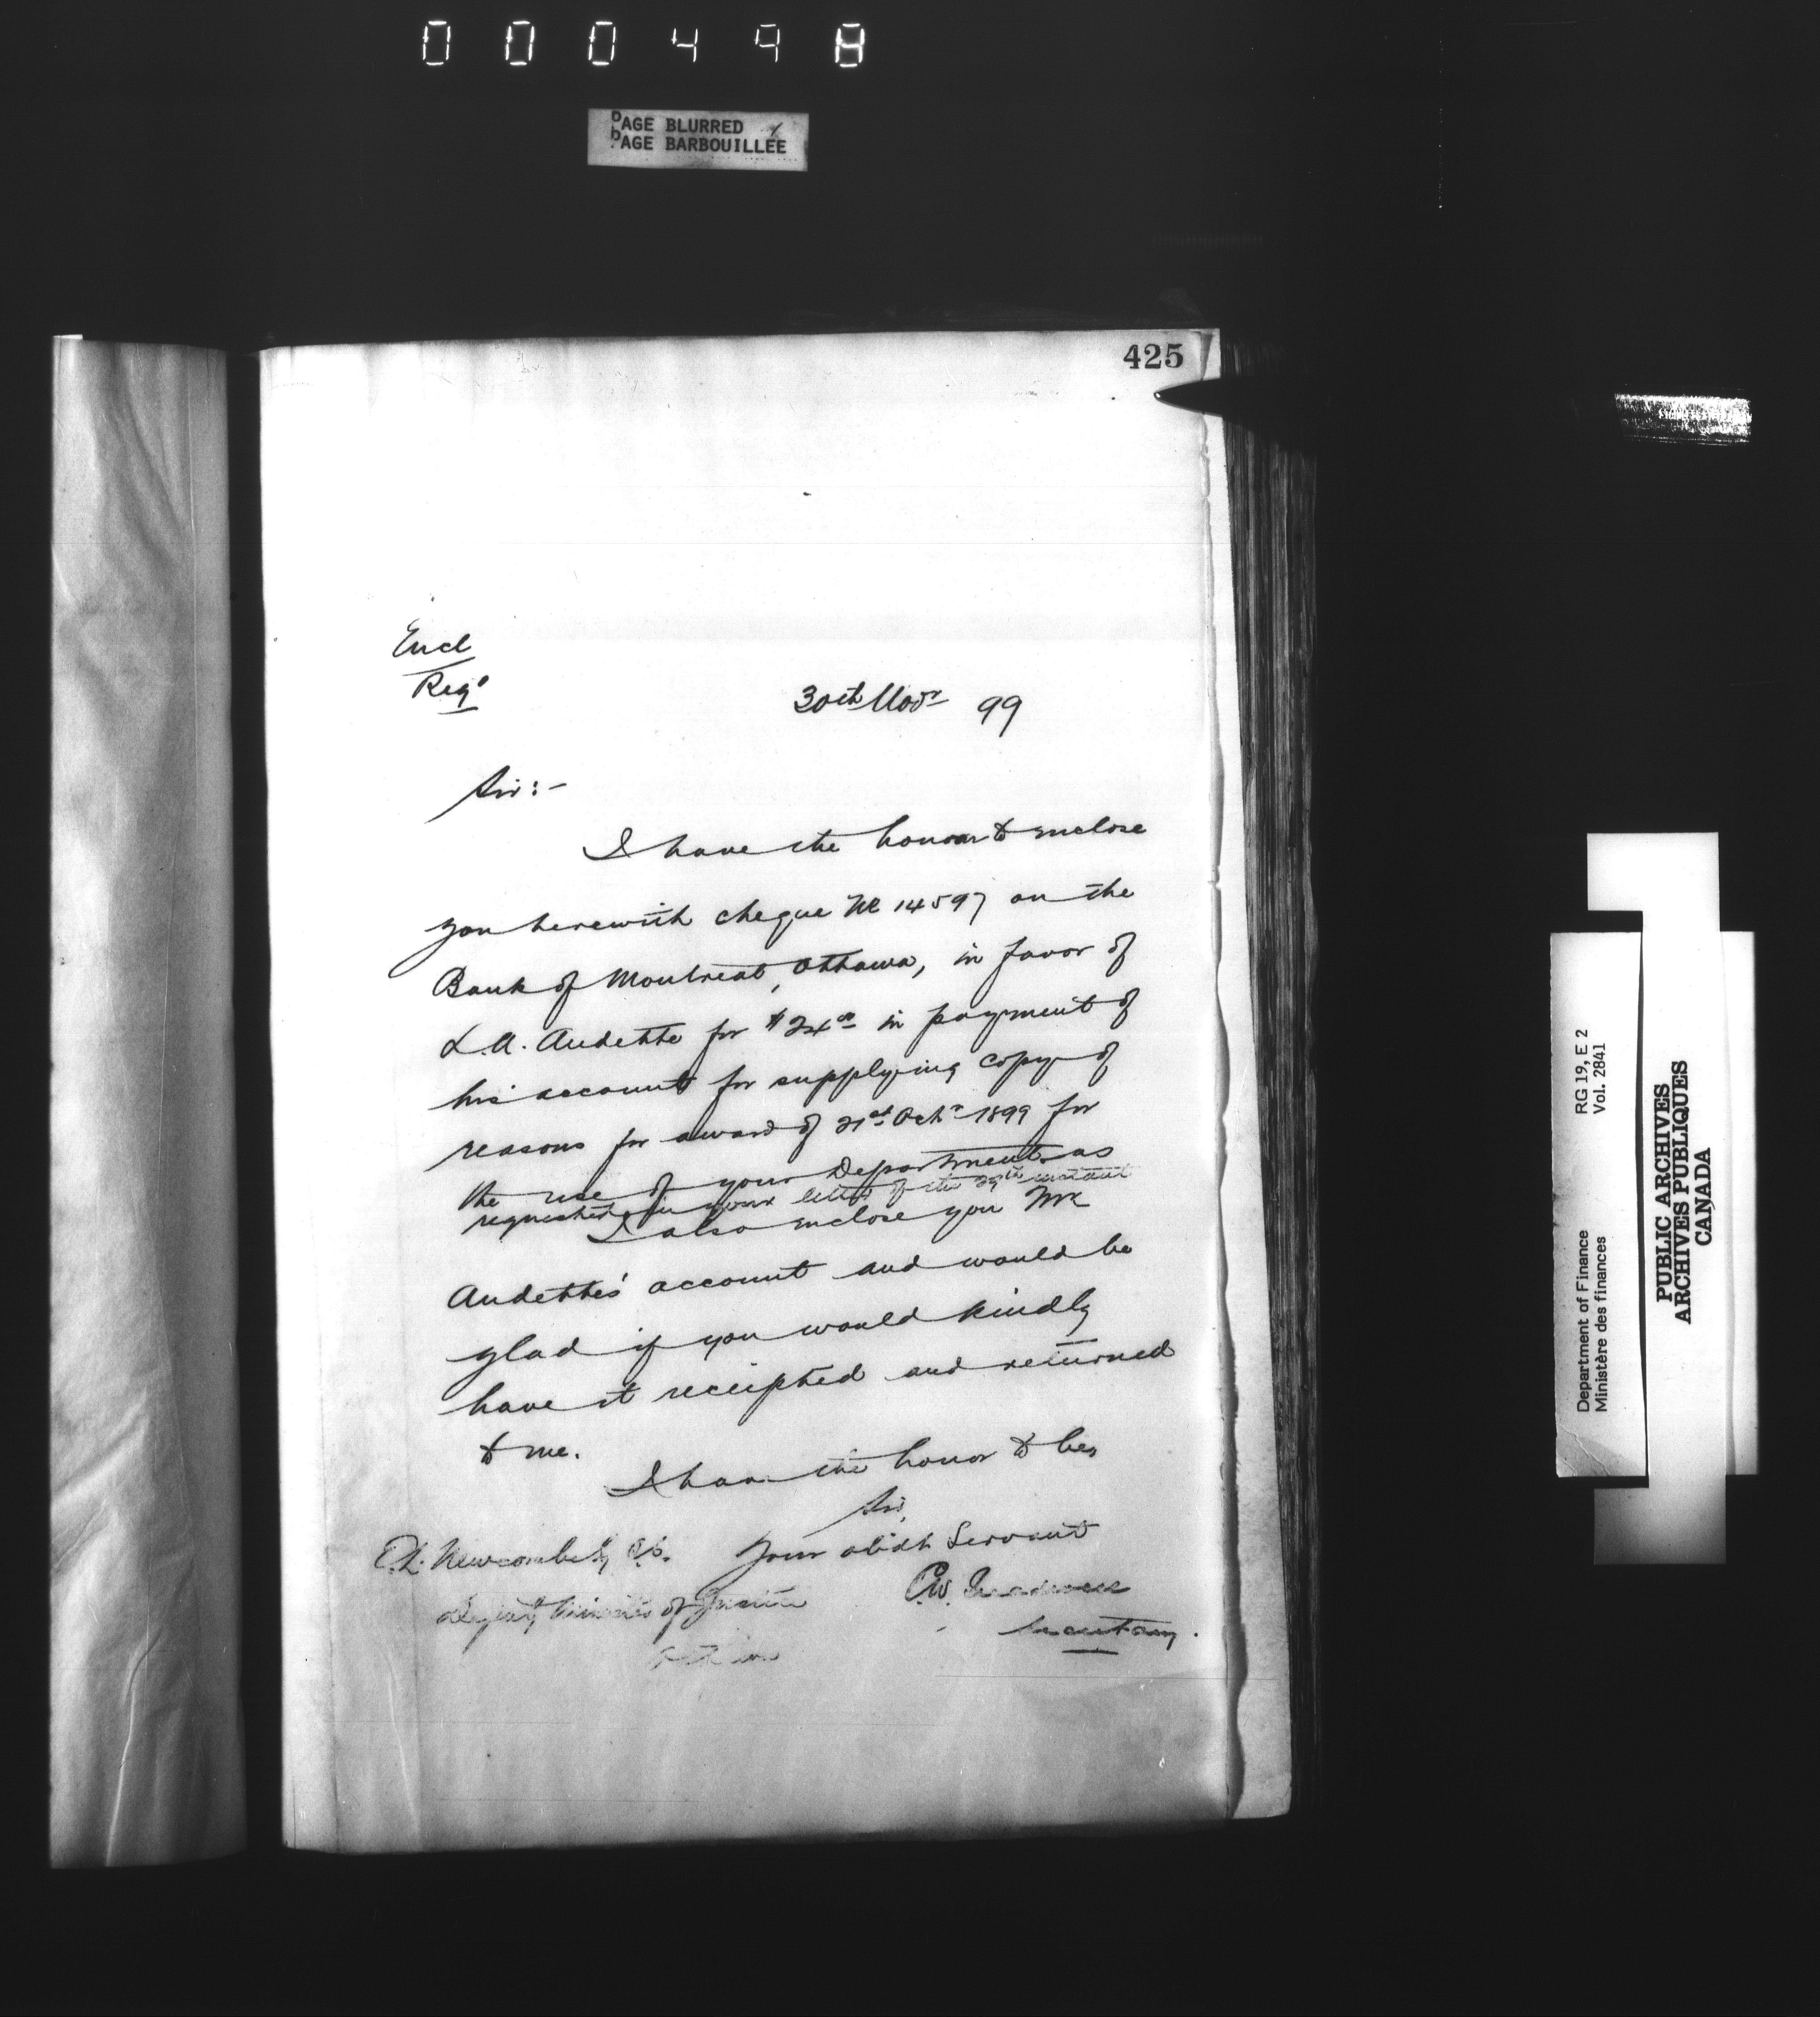 000498
PAGE BLURRED
PAGE BARBOUILLÉE
425
Encl
Reg^d
30th Nov^r 99
Sir:-
I have the honour to enclose
you herewith cheque No 14597 on the
Bank of Montreal, Ottawa, in favor of
L.A. Audette for $24^00 in payment of
his account for supplying copy of
reasons for award of 21st Oct^r 1899 for
the use of your Department as
requested in your letter of the 29th instant
I also enclose you Mr
Audette's account and would be
glad if you would kindly
have it receipted and returned
to me.
I have the honor to be,
Sir,
Your obdt Servant
E.L. Newcombe Esq Q.C.
C.W.
Deputy Minister of Justice
Secretary.
Ottawa
Department of Finance
Ministère des finances
RG 19, E 2
Vol. 2841
PUBLIC ARCHIVES
ARCHIVES PUBLIQUES
CANADA